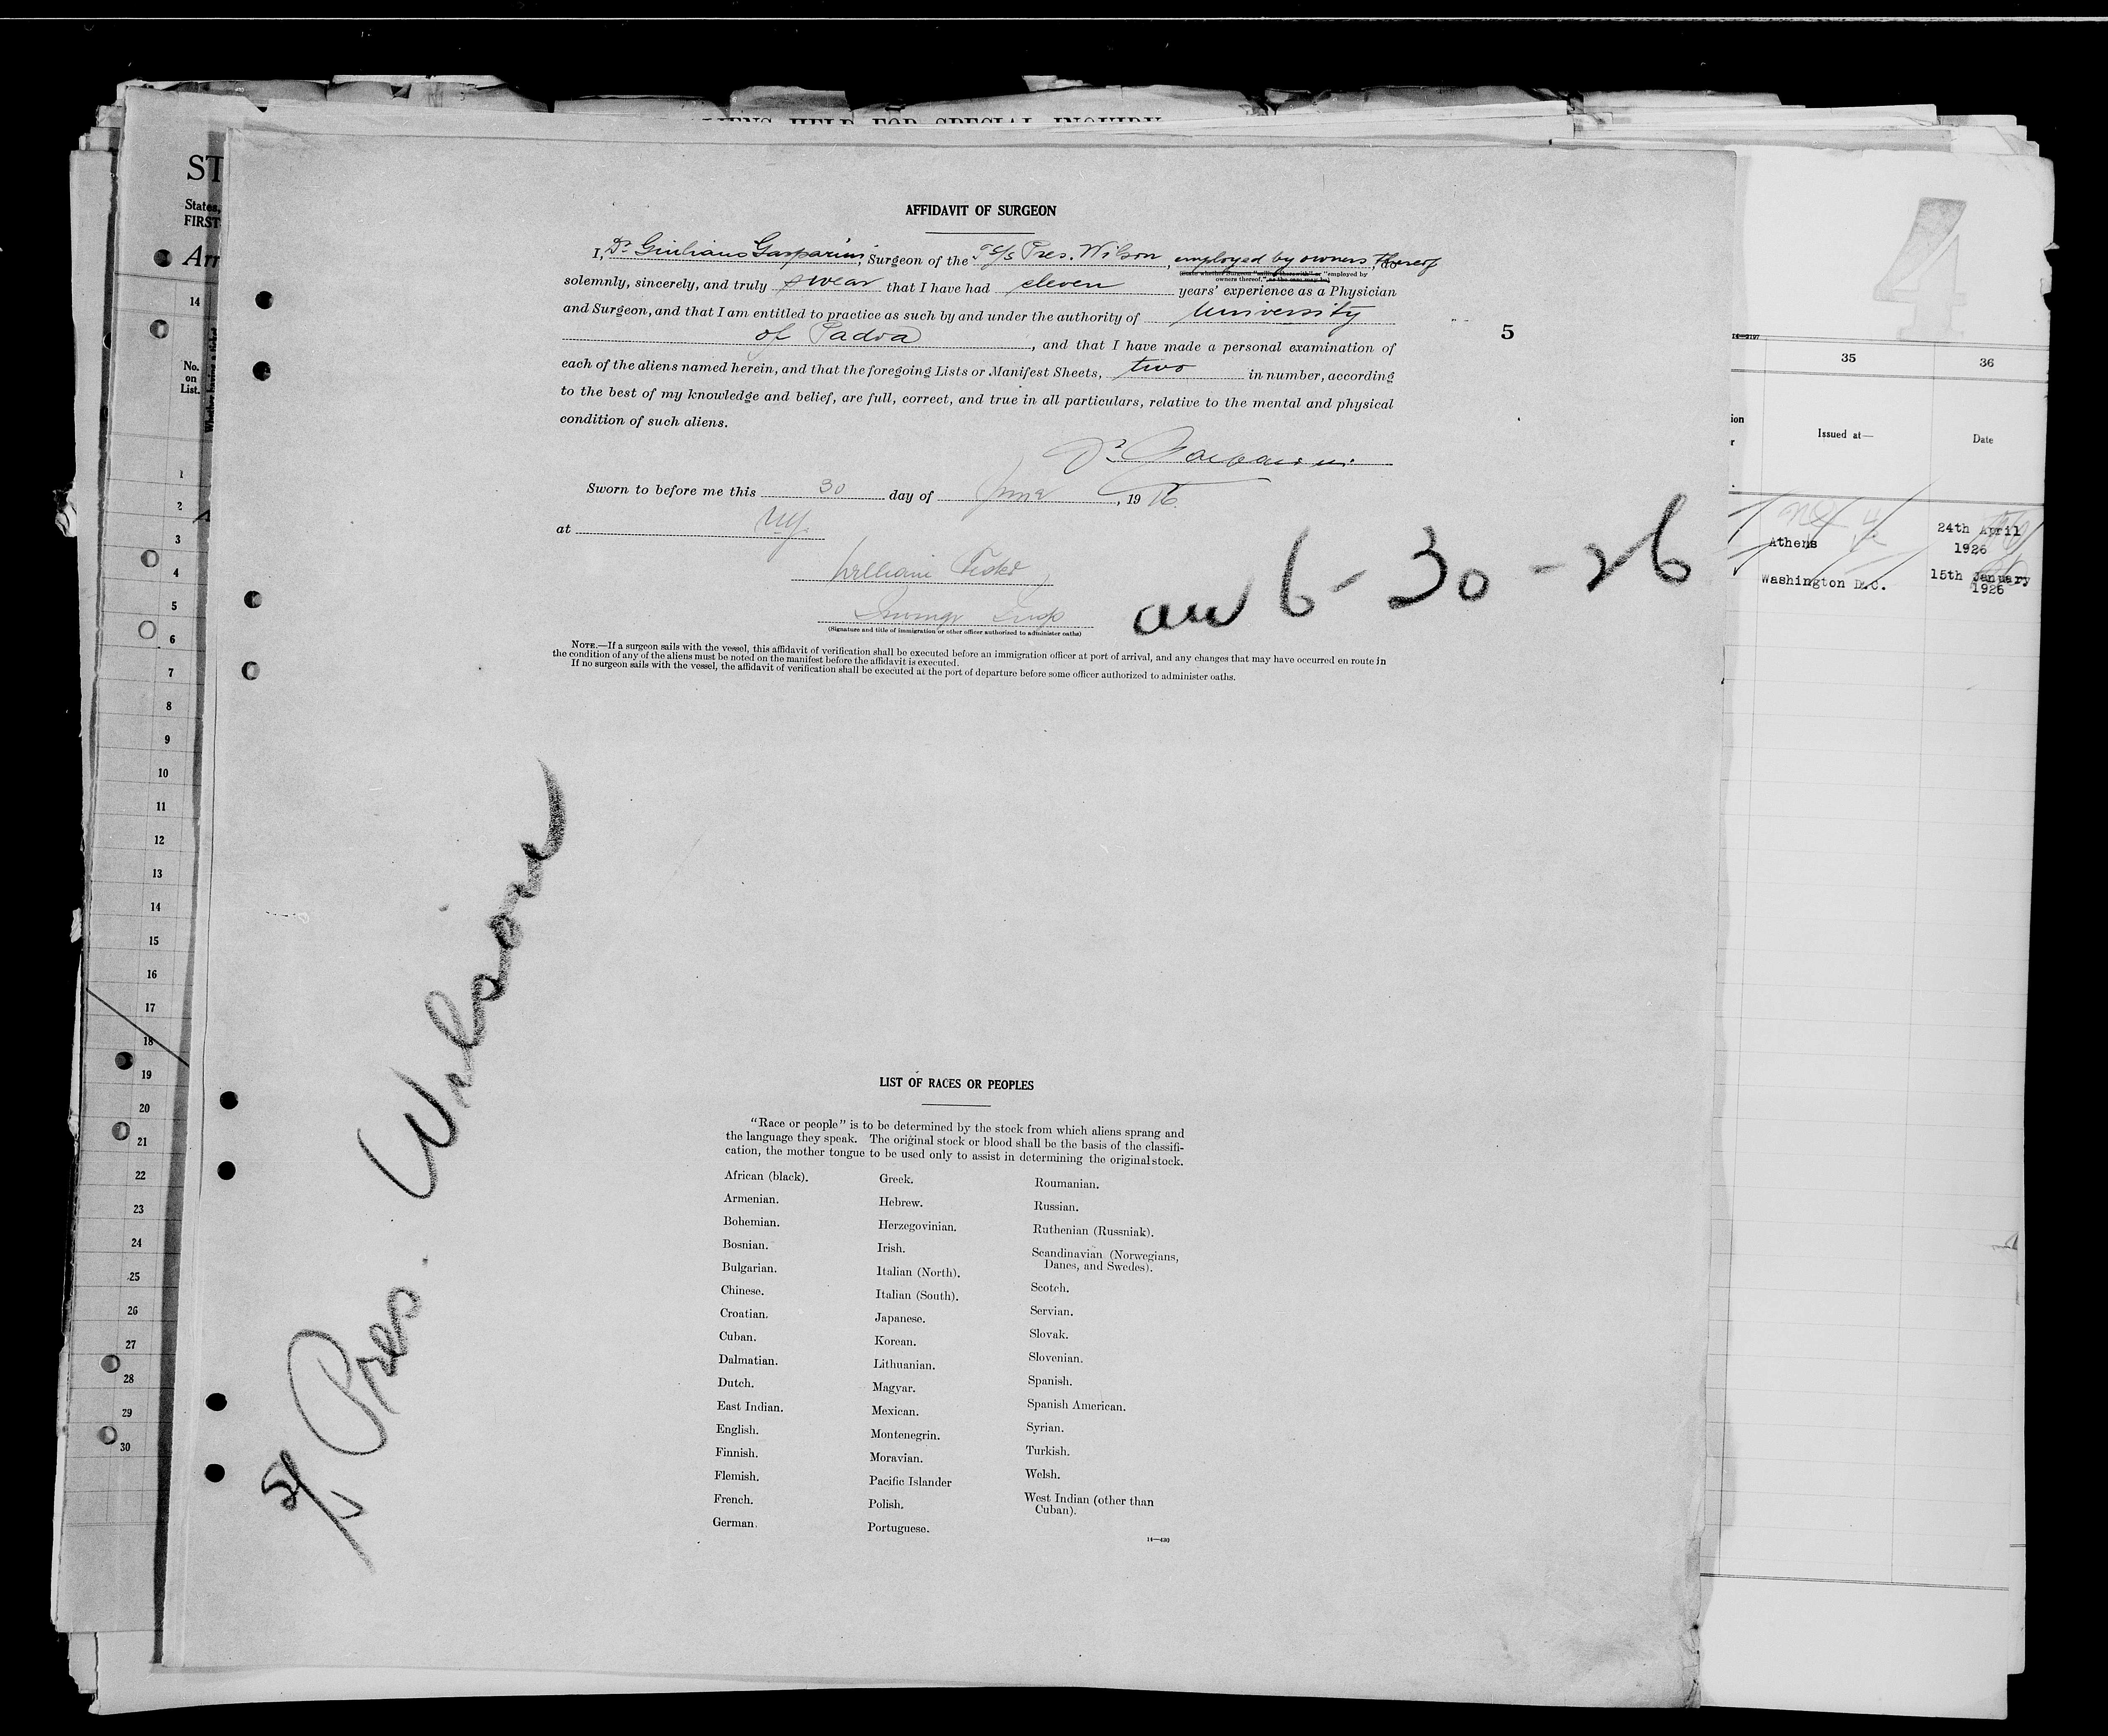 ALIENS HELD FOR SPECIAL INQUIRY
ST
States,
FIRST
Arr
14
No.
on
List.
Whether having a ticket
1
2
3
4
5
6
7
8
9
10
11
12
13
14
15
16
17
18
19
20
21
22
23
24
25
26
27
28
29
30
AFFIDAVIT OF SURGEON
I, Dr Giuliano Gasparini, Surgeon of the Ts/s Pres. Wilson, employed by owners thereof, do
owners thereof," as the case may be)
solemnly, sincerely, and truly swear that I have had eleven years' experience as a Physician
and Surgeon, and that I am entitled to practice as such by and under the authority of University
of Padva, and that I have made a personal examination of
each of the aliens named herein, and that the foregoing Lists or Manifest Sheets, two in number, according
to the best of my knowledge and belief, are full, correct, and true in all particulars, relative to the mental and physical
condition of such aliens.
Dr Gasparini
Sworn to before me this 30 day of June, 1926
at NY.
William
(Signature and title of immigration or other officer authorized to administer oaths)
NOTE.—If a surgeon sails with the vessel, this affidavit of verification shall be executed before an immigration officer at port of arrival, and any changes that may have occurred en route in
the condition of any of the aliens must be noted on the manifest before the affidavit is executed.
If no surgeon sails with the vessel, the affidavit of verification shall be executed at the port of departure before some officer authorized to administer oaths.
arr 6-30-26
5
Pres. Wilson
LIST OF RACES OR PEOPLES
"Race or people" is to be determined by the stock from which aliens sprang and
the language they speak. The original stock or blood shall be the basis of the classifi-
cation, the mother tongue to be used only to assist in determining the original stock.
African (black).
Armenian.
Bohemian.
Bosnian.
Bulgarian.
Chinese.
Croatian.
Cuban.
Dalmatian.
Dutch.
East Indian.
English.
Finnish.
Flemish.
French.
German.
Greek.
Hebrew.
Herzegovinian.
Irish.
Italian (North).
Italian (South).
Japanese.
Korean.
Lithuanian.
Magyar.
Mexican.
Montenegrin.
Moravian.
Pacific Islander
Polish.
Portuguese.
Roumanian.
Russian.
Ruthenian (Russniak).
Scandinavian (Norwegians,
Danes, and Swedes).
Scotch.
Servian.
Slovak.
Slovenian.
Spanish.
Spanish American.
Syrian.
Turkish.
Welsh.
West Indian (other than
Cuban).
14—430
4
35
36
Issued at—
Date
Athens
24th April
1926
Washington D.C.
15th January
1926